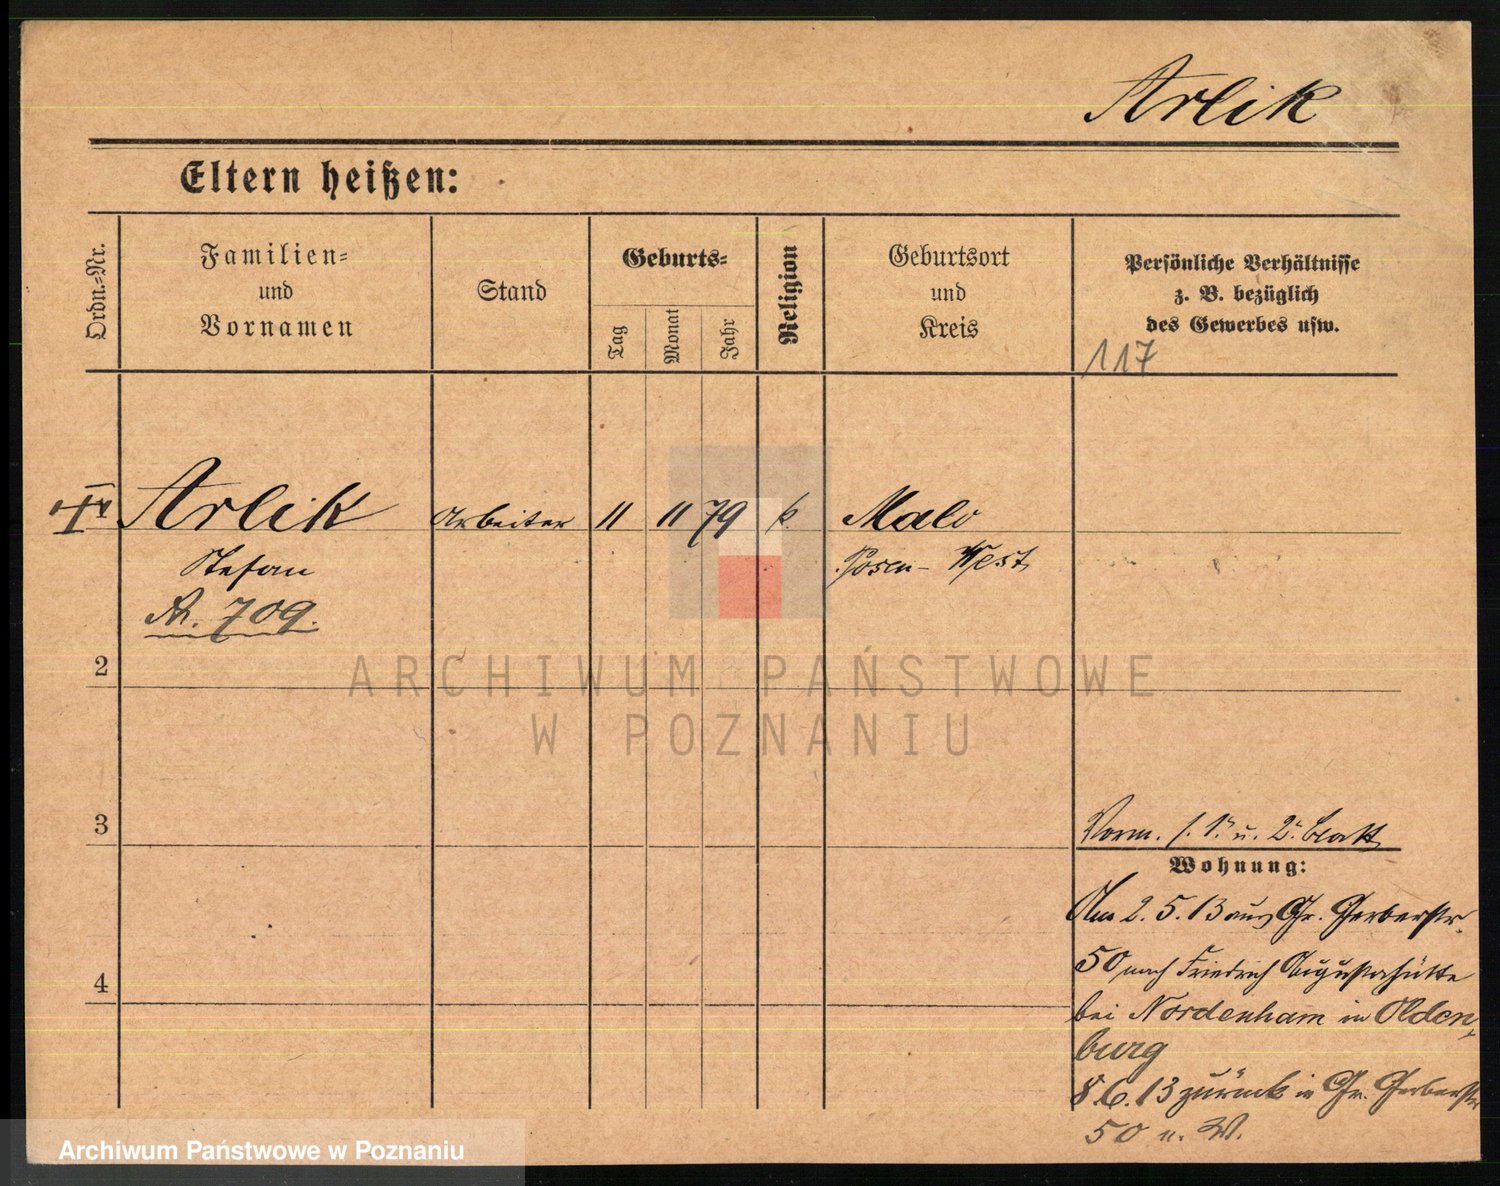 Arlik
Eltern heißen:
Ordn.-Nr.
Familien-
und
Vornamen
Stand
Geburts-
Tag
Monat
Jahr
Religion
Geburtsort
und
Kreis
Persönliche Verhältnisse
z. B. bezüglich
des Gewerbes usw.
117
Arlik Arbeiter 11 11 79 k. Malo
Stefan Posen-West
709.
2
3
4
Vorm. s. 1. u. 2. Blatt
Wohnung:
Am 2. 5. 13 aus Gr. Gerberstr.
50 nach Friedrich Augusthütte
bei Nordenham in Olden-
burg
8. 6. 13 zurück in Gr. Gerberstr
50 u. W.
ARCHIWUM PAŃSTWOWE
W POZNANIU
Archiwum Państwowe w Poznaniu